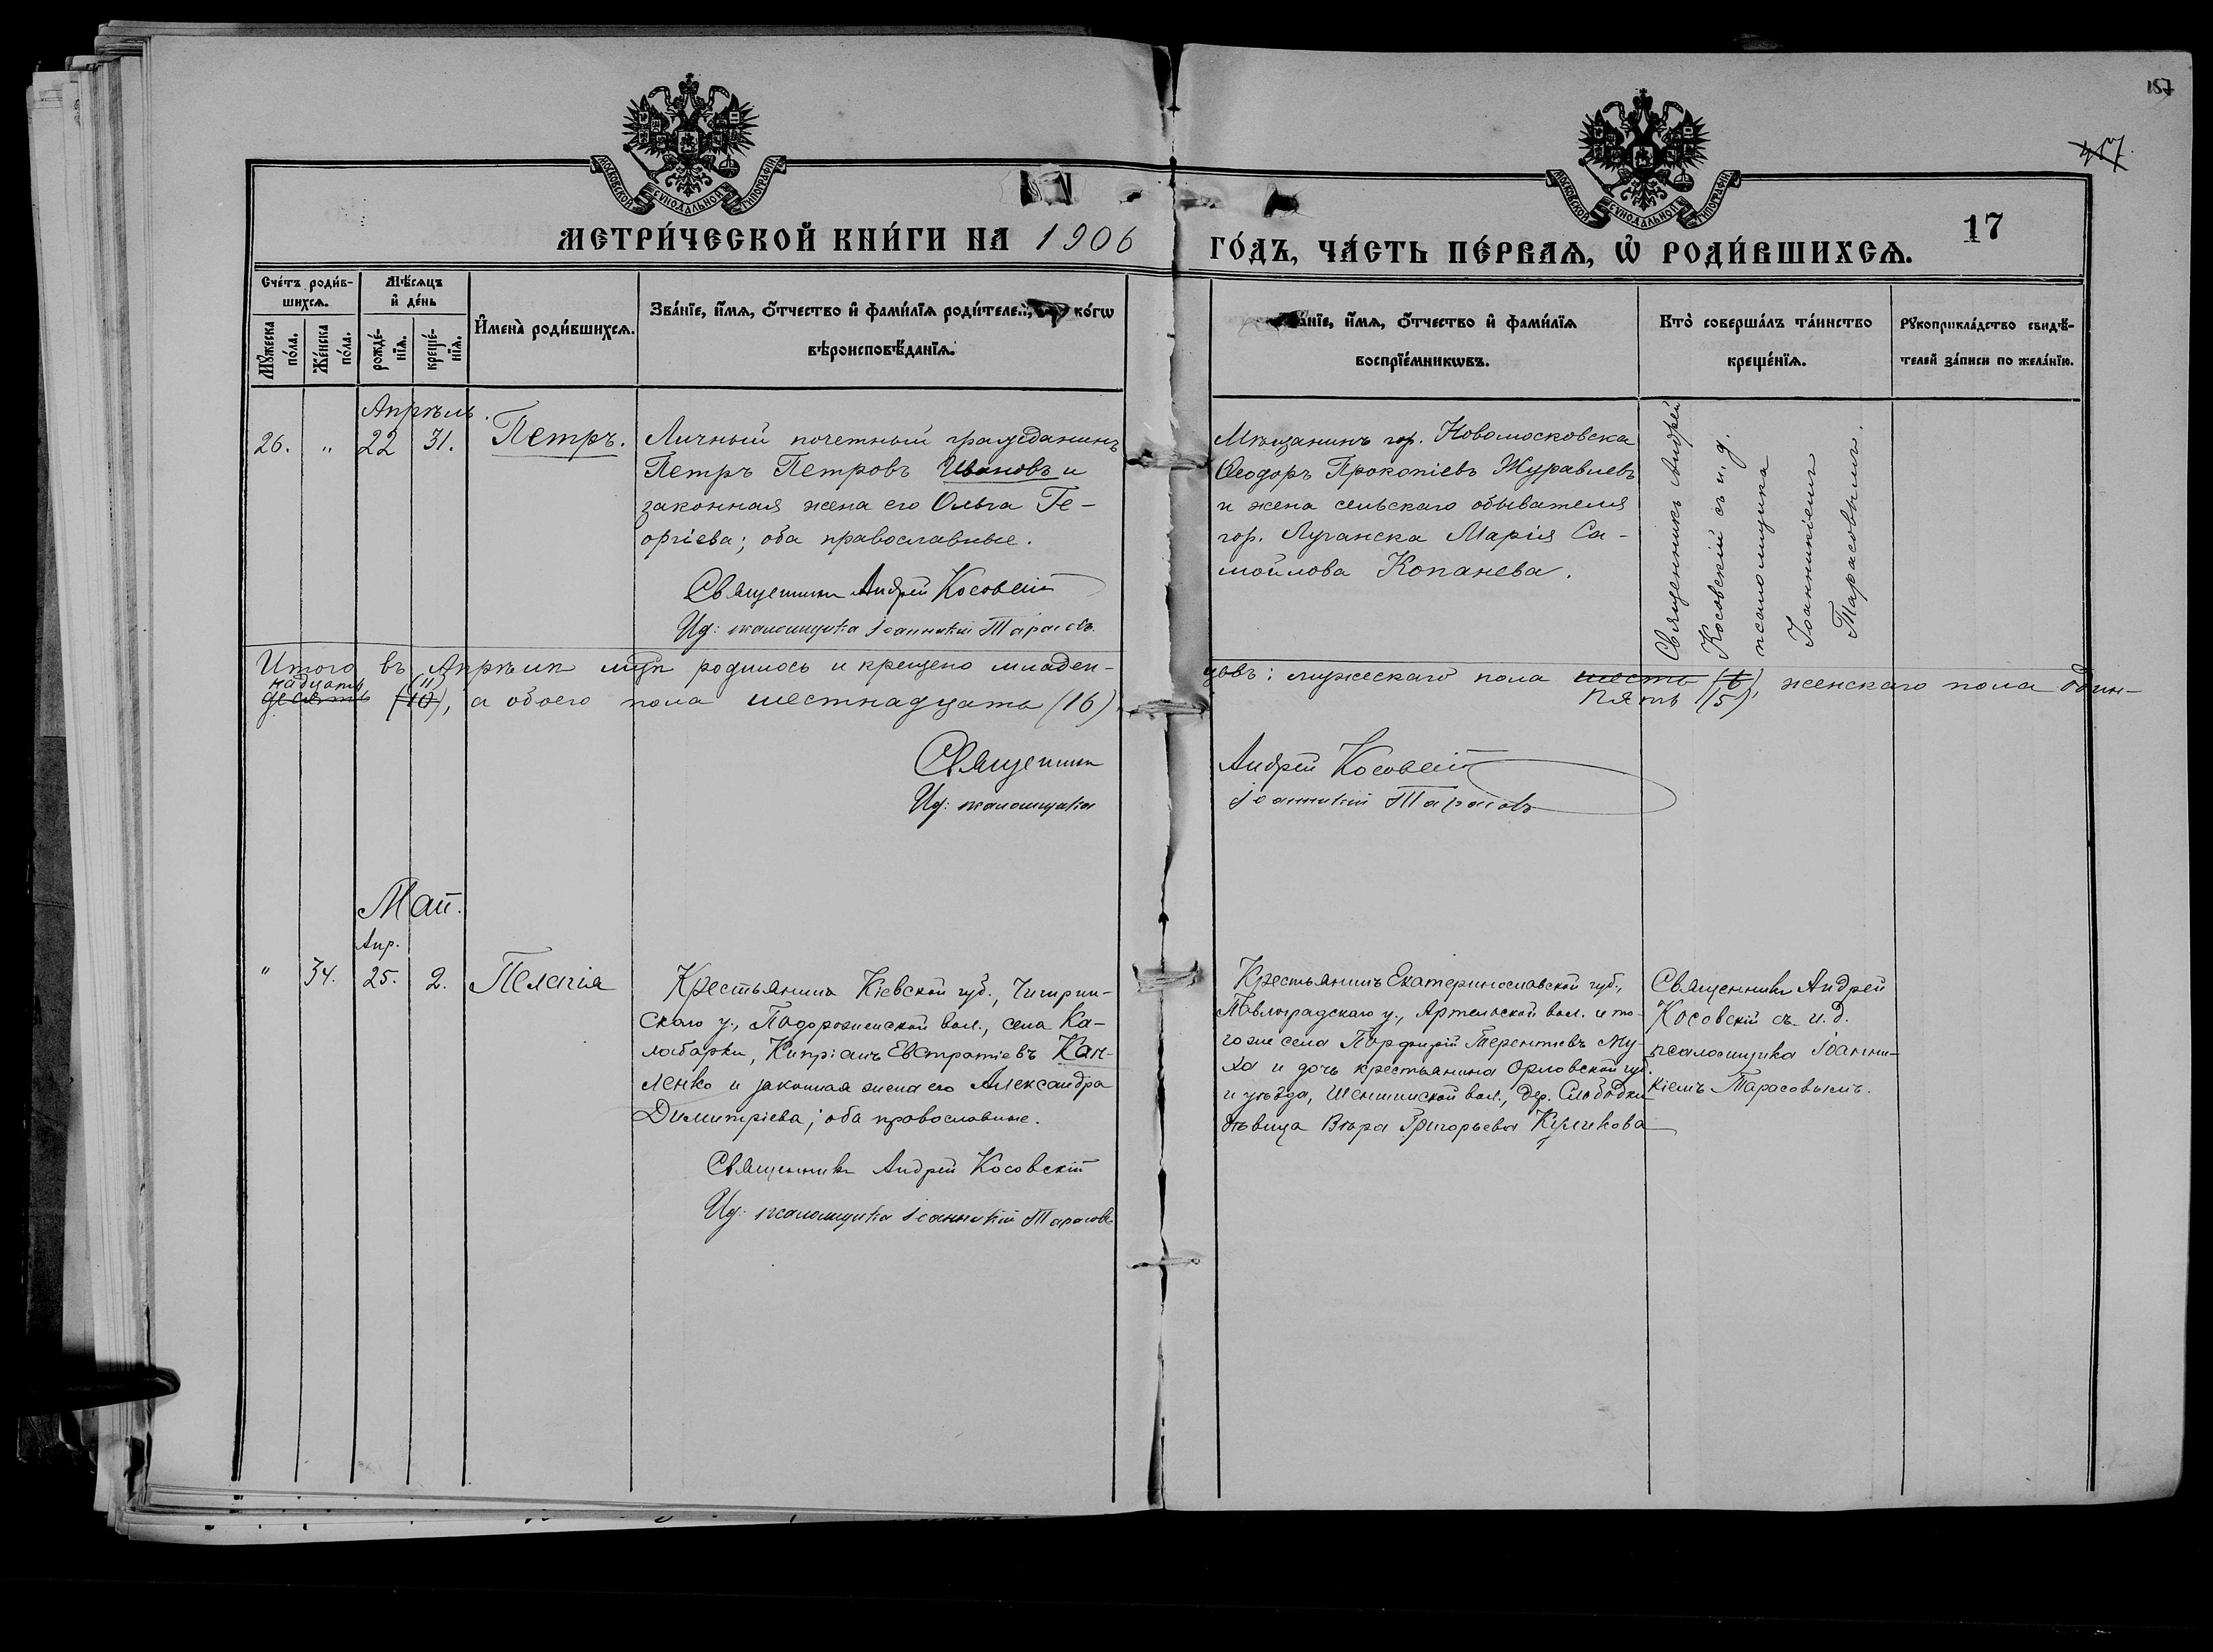 157
417.
МОСКОВСКОЙ СѴНОДАЛЬНОЙ ТИПОГРАФІИ
МОСКОВСКОЙ СѴНОДАЛЬНОЙ ТИПОГРАФІИ
МЕТРИ́ЧЕСКОЙ КНИ́ГИ НА 1906
ГО́ДЪ, ЧА́СТЬ ПЕ́РВАЯ, Ѡ҆ РОДИ́ВШИХСЯ.
17
Сче́тъ роди́в-
шихся.
Мꙋ́жеска
по́ла.
Же́нска
по́ла.
Мѣ́сяцъ
и҆ де́нь
рожде́-
нїя.
креще́-
нїя.
И҆мена̀ роди́вшихся.
Зва́нїе, и҆́мя, ѻ҆́тчество и҆ фами́лїя роди́телей, ко́гѡ
вѣроисповѣ́данїя.
и҆́мя, ѻ҆́тчество и҆ фами́лїя
воспрїе́мникѡвъ.
Кто̀ соверша́лъ та́инство
креще́нїя.
Рꙋкоприкла́дство свидѣ́-
телей за́писи по жела́нїю.
Апрѣль.
26. " 22 31. Петръ.
Личный почетный гражданинъ
Петръ Петровъ Ивановъ и
законная жена его Ольга Ге-
оргіева; оба православные.
Священникъ Андрей Косовскій
Ид: псаломщика Іоанникій Тарасовъ.
Мѣщанинъ гор. Новомосковска
Ѳеодоръ Прокопіевъ Журавлевъ
и жена сельскаго обывателя
гор. Луганска Марія Са-
мойлова Копанева.
Священникъ Андрей
Косовскій съ и. д.
псаломщика
Іоанникіемъ
Тарасовымъ.
Итого въ Апрѣлѣ мцѣ родилось и крещено младен-
цовъ: мужескаго пола шесть (6), женскаго пола один-
пять (5)
надцать (11)
десять (10), а обоего пола шестнадцать (16)
Священникъ Андрей Косовскій
Ид: псаломщика Іоанникій Тарасовъ
Май.
Апр.
" 34. 25. 2. Пелагія
Крестьянинъ Кіевской губ., Чигирин-
скаго у., Подорожненской вол., села Ка-
лабарки, Кипріанъ Евстратіевъ Кан-
ленко и законная жена его Александра
Димитріева; оба православные.
Священникъ Андрей Косовскій
Ид: псаломщика Іоанникій Тарасовъ
Крестьянинъ Екатеринославской губ.,
Павлоградскаго у., Артельской вол. и то-
гоже села Порфирій Терентіевъ Му-
ха и дочь крестьянина Орловской губ.
и уѣзда, Шеншинской вол., дер. Слободки
дѣвица Вѣра Григорьева Куликова
Священникъ Андрей
Косовскій съ и. д.
псаломщика Іоанни-
кіемъ Тарасовымъ.